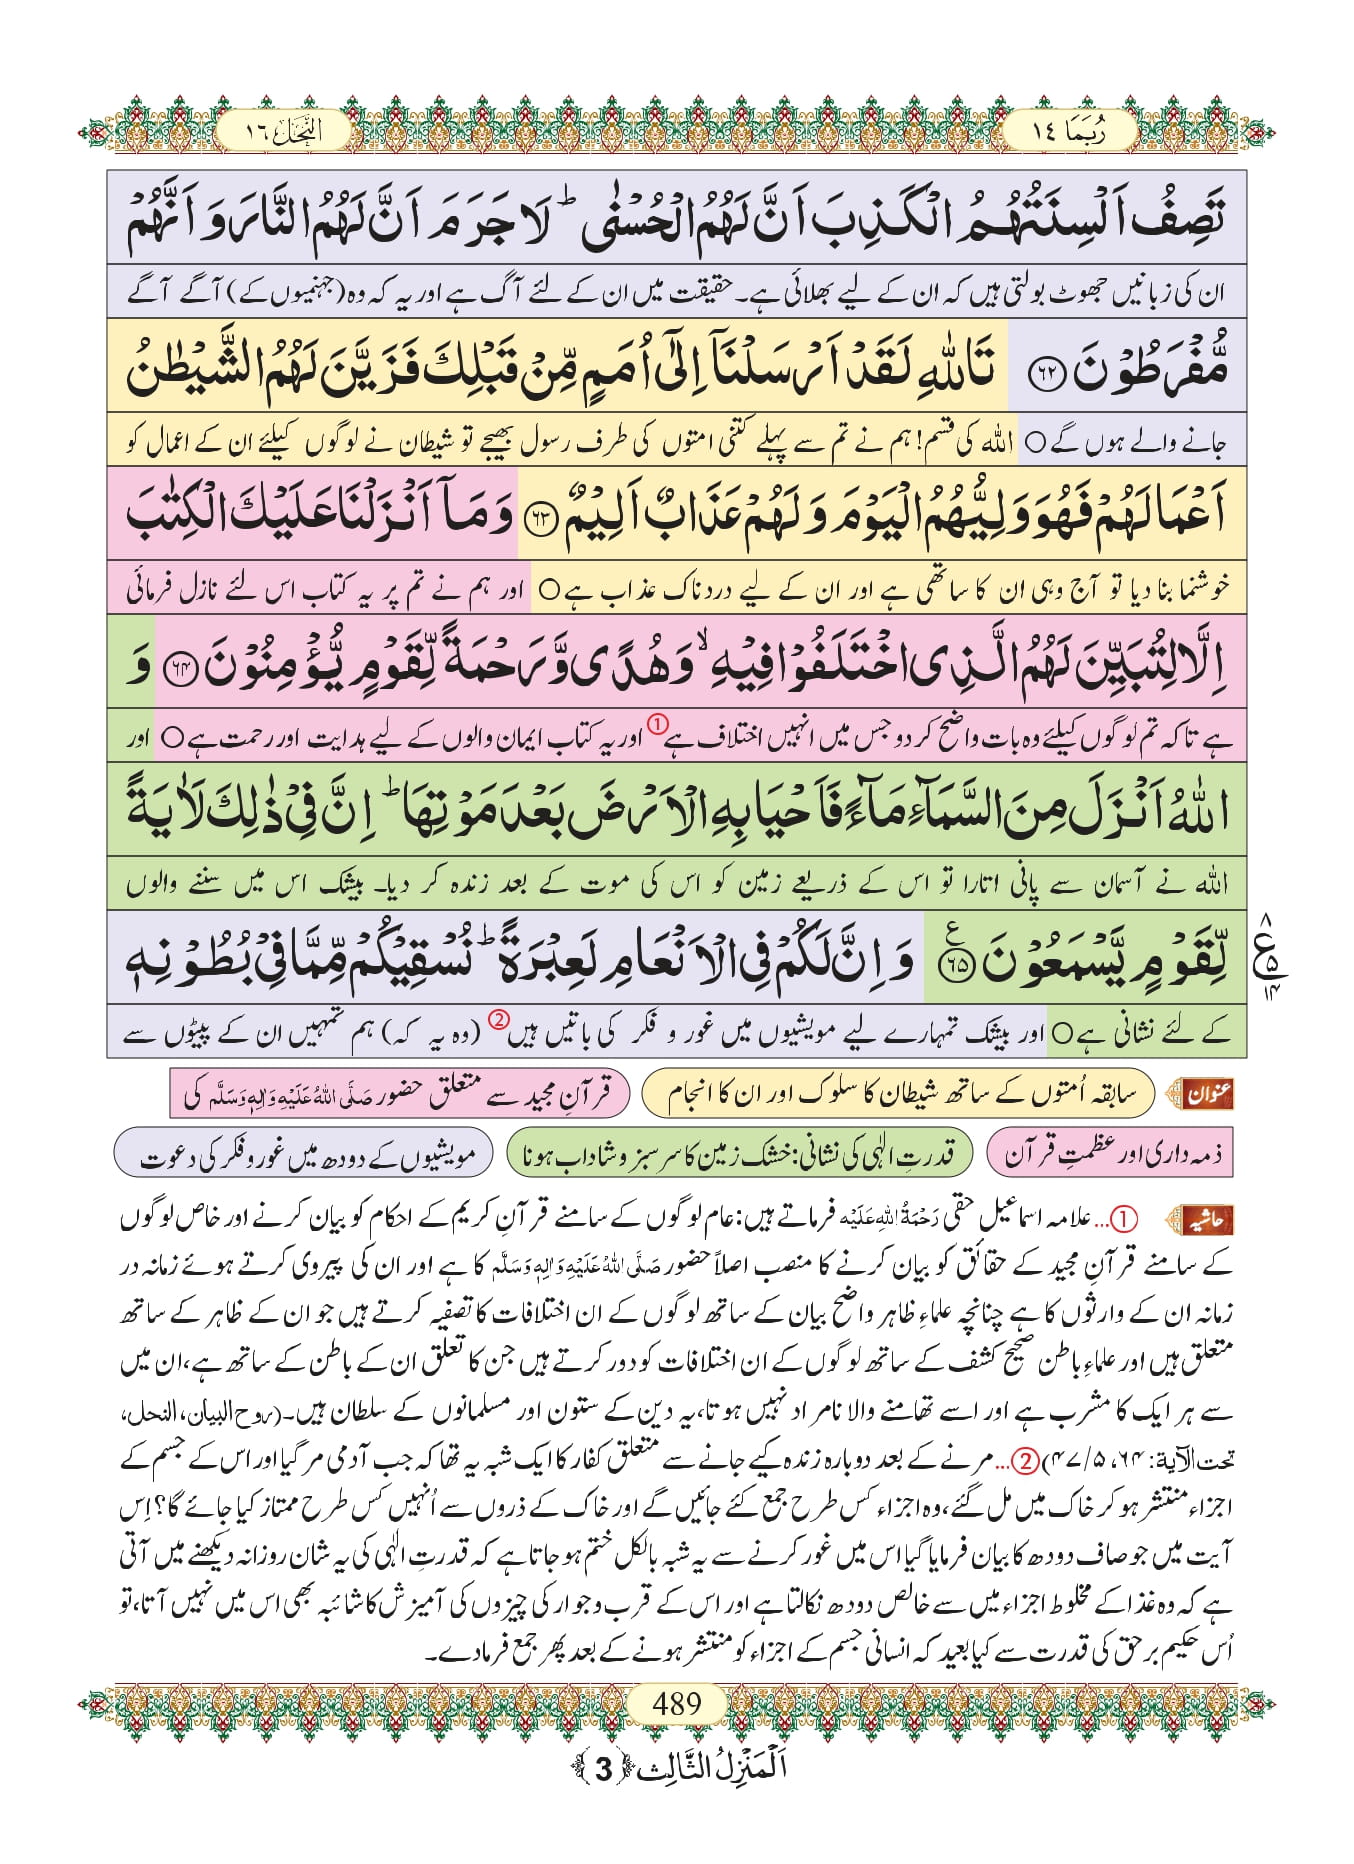 رُبَمَا ١٤
النَّحْل ١٦
تَصِفُ اَلْسِنَتُهُمُ الْكَذِبَ اَنَّ لَهُمُ الْحُسْنٰىؕ لَا جَرَمَ اَنَّ لَهُمُ النَّارَ وَ اَنَّهُمْ
ان کی زبانیں جھوٹ بولتی ہیں کہ ان کے لیے بھلائی ہے۔ حقیقت میں ان کے لئے آگ ہے اور یہ کہ وہ (جہنمیوں کے) آگے آگے
مُّفْرَطُوْنَ ﴿۶۲﴾ تَاللّٰهِ لَقَدْ اَرْسَلْنَاۤ اِلٰۤى اُمَمٍ مِّنْ قَبْلِكَ فَزَیَّنَ لَهُمُ الشَّیْطٰنُ
جانے والے ہوں گے ○ اللہ کی قسم! ہم نے تم سے پہلے کتنی امتوں کی طرف رسول بھیجے تو شیطان نے لوگوں کیلئے ان کے اعمال کو
اَعْمَالَهُمْ فَهُوَ وَلِیُّهُمُ الْیَوْمَ وَ لَهُمْ عَذَابٌ اَلِیْمٌ ﴿۶۳﴾ وَ مَاۤ اَنْزَلْنَا عَلَیْكَ الْكِتٰبَ
خوشنما بنا دیا تو آج وہی ان کا ساتھی ہے اور ان کے لیے دردناک عذاب ہے ○ اور ہم نے تم پر یہ کتاب اس لئے نازل فرمائی
اِلَّا لِتُبَیِّنَ لَهُمُ الَّذِی اخْتَلَفُوْا فِیْهِۙ وَ هُدًى وَّ رَحْمَةً لِّقَوْمٍ یُّؤْمِنُوْنَ ﴿۶۴﴾ وَ
ہے تاکہ تم لوگوں کیلئے وہ بات واضح کر دو جس میں انہیں اختلاف ہے① اور یہ کتاب ایمان والوں کے لیے ہدایت اور رحمت ہے ○ اور
اللّٰهُ اَنْزَلَ مِنَ السَّمَآءِ مَآءً فَاَحْیَا بِهِ الْاَرْضَ بَعْدَ مَوْتِهَاؕ اِنَّ فِیْ ذٰلِكَ لَاٰیَةً
اللہ نے آسمان سے پانی اتارا تو اس کے ذریعے زمین کو اس کی موت کے بعد زندہ کر دیا۔ بیشک اس میں سننے والوں
لِّقَوْمٍ یَّسْمَعُوْنَ ﴿۶۵﴾ع وَ اِنَّ لَكُمْ فِی الْاَنْعَامِ لَعِبْرَةًؕ نُسْقِیْكُمْ مِّمَّا فِیْ بُطُوْنِهٖ
۸
ع۵
۱۴
کے لئے نشانی ہے ○ اور بیشک تمہارے لیے مویشیوں میں غور و فکر کی باتیں ہیں② (وہ یہ کہ) ہم تمہیں ان کے پیٹوں سے
عنوان سابقہ اُمتوں کے ساتھ شیطان کا سلوک اور ان کا انجام قرآنِ مجید سے متعلق حضور صَلَّی اللہُ عَلَیْہِ وَاٰلِہٖ وَسَلَّم کی
ذمہ داری اور عظمتِ قرآن قدرتِ الٰہی کی نشانی: خشک زمین کا سرسبز و شاداب ہونا مویشیوں کے دودھ میں غور و فکر کی دعوت
حاشیہ ①... علامہ اسماعیل حقی رَحْمَۃُ اللہِ عَلَیْہ فرماتے ہیں: عام لوگوں کے سامنے قرآنِ کریم کے احکام کو بیان کرنے اور خاص لوگوں
کے سامنے قرآنِ مجید کے حقائق کو بیان کرنے کا منصب اصلاً حضور صَلَّی اللہُ عَلَیْہِ وَاٰلِہٖ وَسَلَّم کا ہے اور ان کی پیروی کرتے ہوئے زمانہ در
زمانہ ان کے وارثوں کا ہے چنانچہ علماءِ ظاہر واضح بیان کے ساتھ لوگوں کے ان اختلافات کا تصفیہ کرتے ہیں جو ان کے ظاہر کے ساتھ
متعلق ہیں اور علماءِ باطن صحیح کشف کے ساتھ لوگوں کے ان اختلافات کو دور کرتے ہیں جن کا تعلق ان کے باطن کے ساتھ ہے، ان میں
سے ہر ایک کا مشرب ہے اور اسے تھامنے والا نامراد نہیں ہوتا، یہ دین کے ستون اور مسلمانوں کے سلطان ہیں۔ (روح البیان، النحل،
تحت الآیۃ: ۶۴، ۵/۴۷) ②... مرنے کے بعد دوبارہ زندہ کیے جانے سے متعلق کفار کا ایک شبہ یہ تھا کہ جب آدمی مر گیا اور اس کے جسم کے
اجزاء منتشر ہو کر خاک میں مل گئے، وہ اجزاء کس طرح جمع کئے جائیں گے اور خاک کے ذروں سے اُنہیں کس طرح ممتاز کیا جائے گا؟ اِس
آیت میں جو صاف دودھ کا بیان فرمایا گیا اس میں غور کرنے سے یہ شبہ بالکل ختم ہو جاتا ہے کہ قدرتِ الٰہی کی یہ شان روزانہ دیکھنے میں آتی
ہے کہ وہ غذا کے مخلوط اجزاء میں سے خالص دودھ نکالتا ہے اور اس کے قرب و جوار کی چیزوں کی آمیزش کا شائبہ بھی اس میں نہیں آتا، تو
اُس حکیم برحق کی قدرت سے کیا بعید کہ انسانی جسم کے اجزاء کو منتشر ہونے کے بعد پھر جمع فرما دے۔
489
اَلْمَنْزِلُ الثَّالِث ﴿3﴾